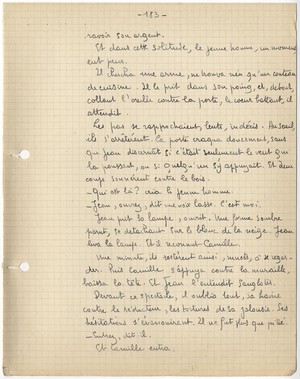 - 183 -
ravoir son argent.
Et dans cette solitude, le jeune homme, un moment
eut peur.
Il chercha une arme, ne trouva rien qu'un couteau
de cuisine. Il le prit dans son poing, et, debout,
collant l'oreille contre la porte, le cœur battant, il
attendit.
Les pas se rapprochaient, lents, indécis. Au seuil,
ils s'arrêtèrent. La porte craqua doucement, sans
que Jean discernât si c'était seulement le vent qui
la poussait, ou si quelqu'un s'y appuyait. Et deux
coups sonnèrent contre le bois.
- Qui est là ? cria le jeune homme.
- Jean, ouvrez, dit une voix lasse. C'est moi.
Jean prit sa lampe, ouvrit. Une forme sombre
parut, se détachant sur le blanc de la neige. Jean
leva la lampe. Et il reconnut Camille.
Une minute, ils restèrent ainsi, muets, à se regar-
der. Puis Camille s'appuya contre la muraille,
baissa la tête. Et Jean l'entendit sangloter.
Devant ce spectacle, il oublia tout, sa haine
contre le séducteur, les tortures de sa jalousie. Ses
hésitations s'évanouirent. Il ne fut plus que pitié.
- Entrez, dit-il.
Et Camille entra.